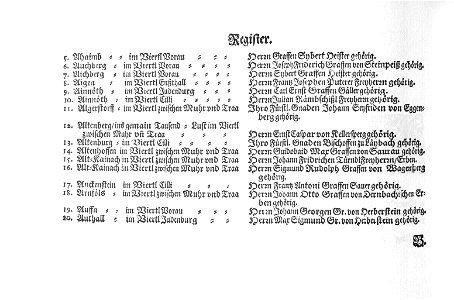 Register.
5. Ahaimb im Viertl Vorau Herrn Graffen Sybert Heister gehörig.
6. Aichberg im Viertl Vorau Herrn Joseph Friderich Graffen von Steinpeiß gehörig.
7. Aichberg im Viertl Vorau Herrn Sybert Graffen Heister gehörig.
8. Aigen im Viertl Ensthall Herrn Frantz Josephen Puterer Freyherrn gehörig.
9. Ainnöth im Viertl Jadenburg Herrn Carl Ernst Graffen Gäller gehörig.
10. Ainnöth im Viertl Cilli Herrn Julian Rambschißl Freyherrn gehörig.
11. Algerstorff im Viertl zwischen Muhr vnd Traa Ihro Fürstl. Gnaden Johann Seyfriden von Eggen-
berg gehörig.
12. Altenberg / ins gemain Tausend-Lust im Viertl
zwischen Muhr vn Traa Herrn Ernst Caspar von Kellersperg gehörig.
13. Altenburg in Viertl Cilli Ihro Fürstl. Gnaden Bischoffen zu Laybach gehörig.
14. Altenhoffen im Viertl zwischen Muhr vnd Traa Herrn Guidobald Max Graffen von Saurau gehörig.
15. Alt-Kainach im Viertl zwischen Muhr vnd Traa Herrn Johann Fridrichen Türndl Freyherrn / Erben.
16. Alt-Kainach in Viertl zwischen Muhr vnd Traa Herrn Sigmund Rudolph Graffen von Wagensperg
gehörig.
17. Anckenstein in Viertl Cilli Herrn Frantz Antoni Graffen Saurr gehörig.
18. Arnföls im Viertl zwischen Muhr vnd Traa Herrn Johann Otto Graffen von Dernbachischen Er-
ben gehörig.
19. Auffa im Viertl Vorau Herrn Johann Georgen Gr. von Herberstein gehörig.
20. Authall im Viertl Jadenburg Herrn Max Sigmund Gr. von Herberstein gehörig.
B.